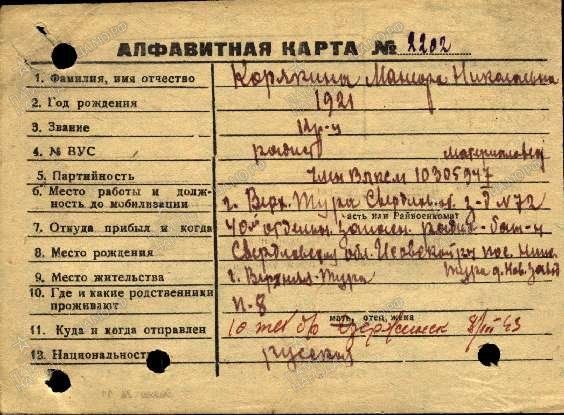 АЛФАВИТНАЯ КАРТА № 2202
1. Фамилия, имя отчество Корякина Николаевна
2. Год рождения 1921
3. Звание Кр-ц
4. № ВУС радист
5. Партийность Член ВЛКСМ 10305347
6. Место работы и долж-
ность до мобилизации г. Верх. Тура Свердл. об. з-д №72
7. Откуда прибыл и когда 40й отделн. Запасн. радио-бат-н
асть или Райвоенкомат
8. Место рождения Свердловская обл. Исовской р. пос. Ниж.
Тура д. Нов.
9. Место жительства г. Верхняя-Тура
10. Где и какие родственники
проживают П-8
мать, отец, жена
11. Куда и когда отправлен 10 Дзержинск 8/III 43
13. Национальность русская